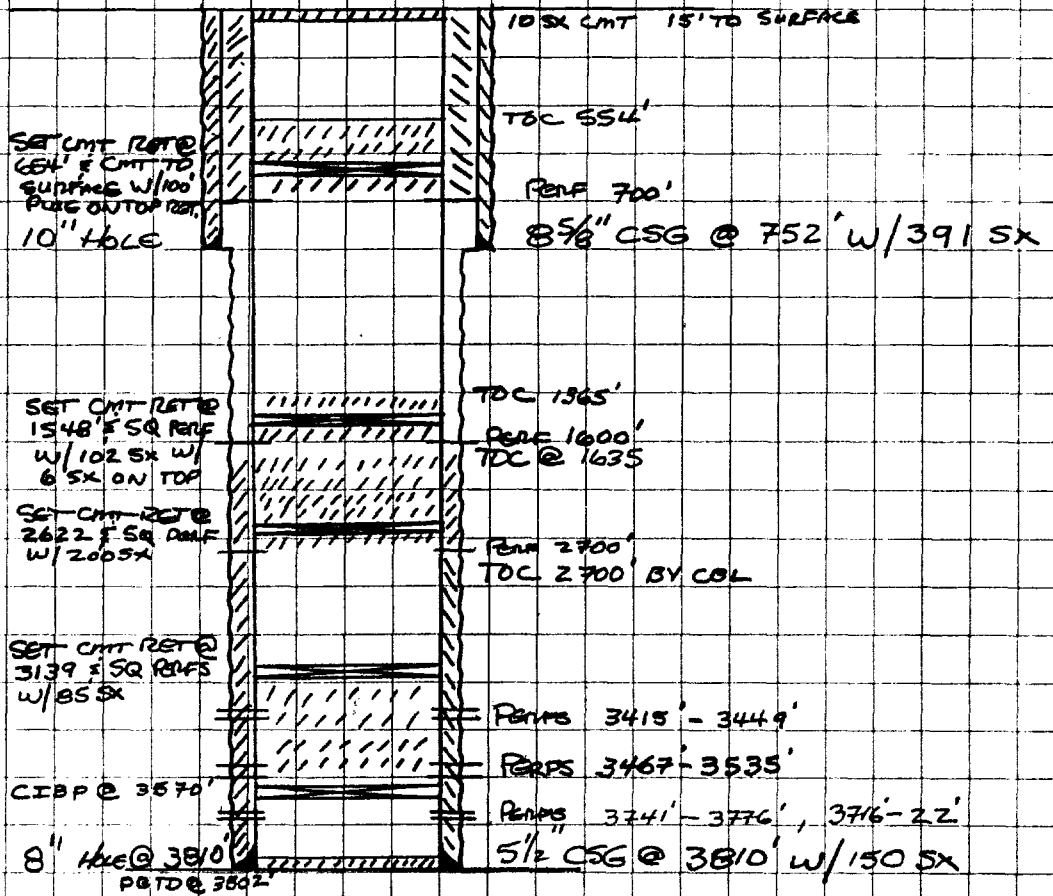 10 SX CMT 15' TO SURFACE
TOC 554'
SET CMT RET @
654' & CMT TO
SURFACE W/100'
PLUG ON TOP RET.
10" HOLE
PERF 700'
8 5/8" CSG @ 752' W/391 SX
SET CMT RET @
1548' & SQ PERF
W/102 SX W/
6 SX ON TOP
TOC 1365'
PERF 1600'
TOC @ 1635
SET CMT RET @
2622 & SQ PERF
W/200 SX
PERF 2700'
TOC 2700' BY CBL
SET CMT RET @
3139 & SQ PERFS
W/85 SX
PERFS 3415'-3449'
PERFS 3467'-3535'
CIBP @ 3570'
PERFS 3741'-3776', 3716'-22'
8" HOLE @ 3810'
PBTD @ 3802'
5 1/2" CSG @ 3810' W/150 SX